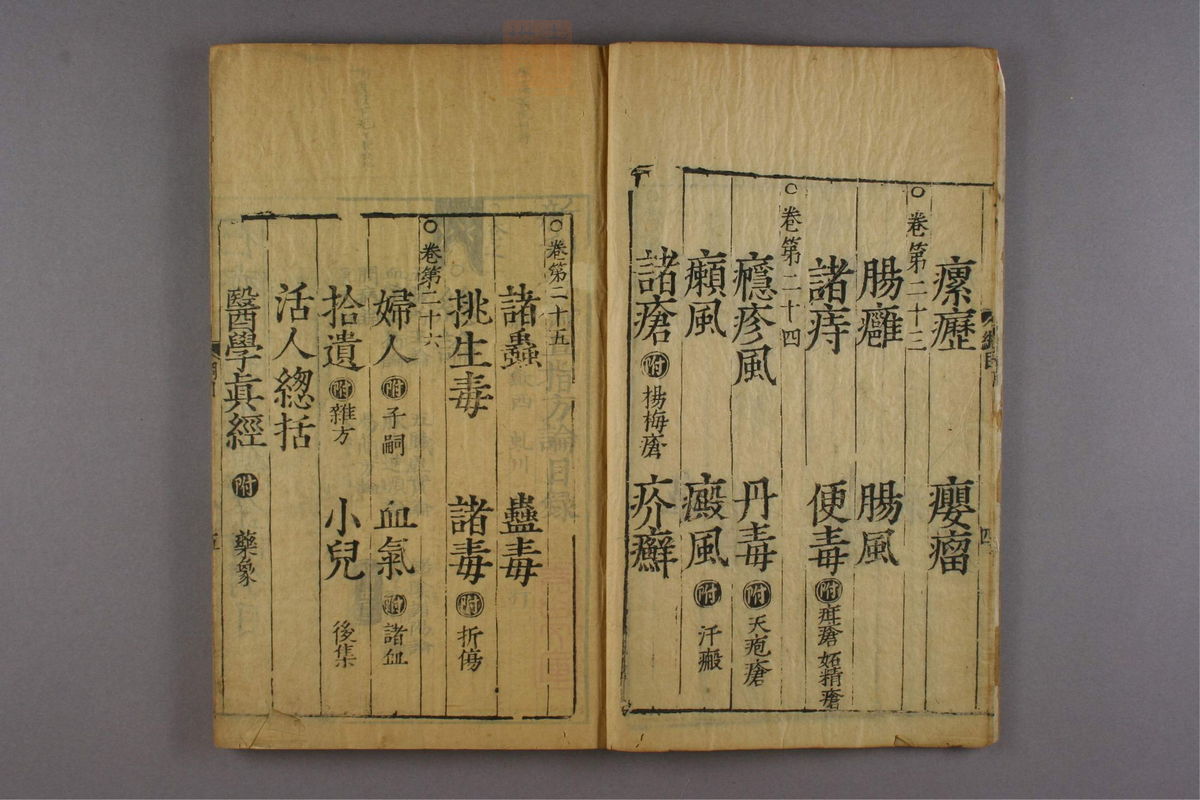 瘰癧 癭瘤
○卷第二十三
腸癰 腸風
諸痔 便毒 附 疳瘡 妬精瘡
○卷第二十四
癮疹風 丹毒 附 天疱瘡
癩風 癜風 附 汗瘢
諸瘡 附 楊梅瘡 疥癬
四
○卷第二十五
諸蟲 蠱毒
挑生毒 諸毒 附 折傷
○卷第二十六
婦人 附 子嗣 血氣 附 諸血
拾遺 附 雜方 小兒 後集
活人總括
醫學眞經 附 藥象
五